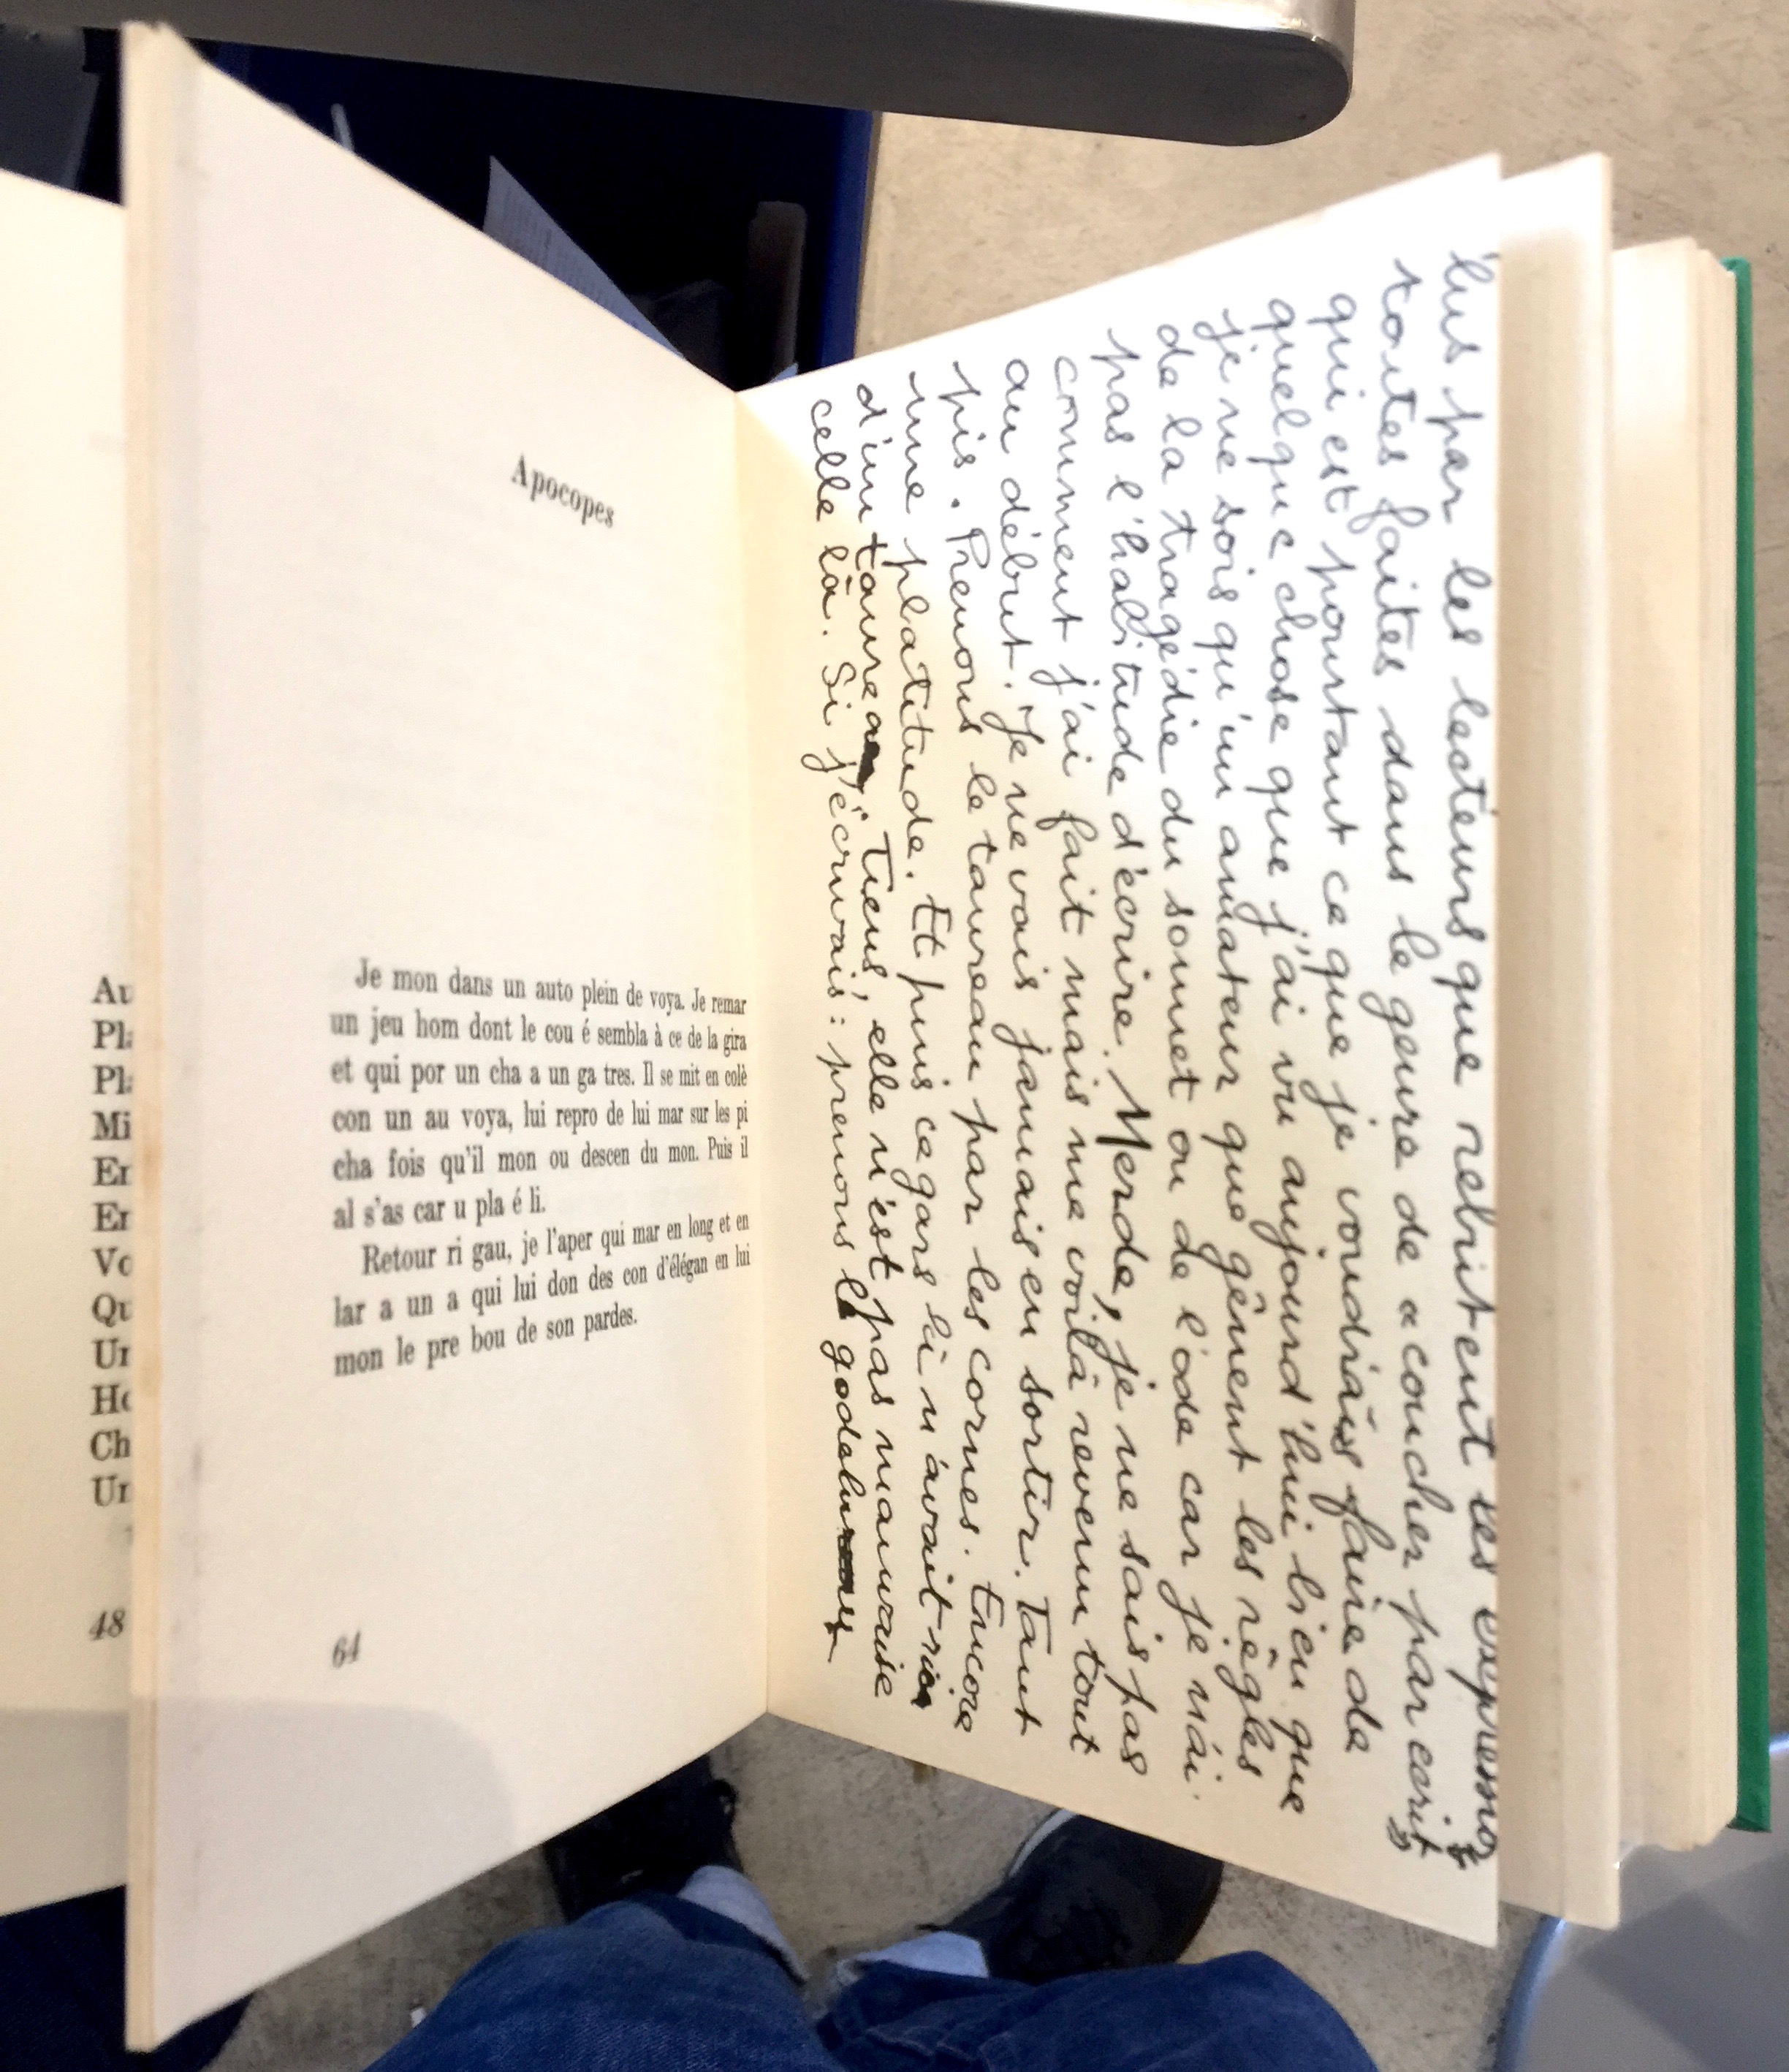 Au
Pla
Pla
Mi
En
En
Vo
Qu
Un
Ho
Ch
Un
48
Apocopes
Je mon dans un auto plein de voya. Je remar
un jeu hom dont le cou é sembla à ce de la gira
et qui por un cha a un ga tres. Il se mit en colè
con un au voya, lui repro de lui mar sur les pi
cha fois qu'il mon ou descen du mon. Puis il
al s'as car u pla é li.
Retour ri gau, je l'aper qui mar en long et en
lar a un a qui lui don des con d'élégan en lui
mon le pre bou de son pardes.
64
lus par les lecteurs que rebutent les expressions
toutes faites dans le genre de « coucher par écrit »
qui est pourtant ce que je voudrais faire de
quelque chose que j'ai vu aujourd'hui bien que
je ne sois qu'un amateur que gênent les règles
de la tragédie du sonnet ou de l'ode car je n'ai
pas l'habitude d'écrire. Merde, je ne sais pas
comment j'ai fait mais me voilà revenu tout
au début. Je ne vais jamais en sortir. Tant
pis. Prenons le taureau par les cornes. Encore
une platitude. Et puis ce gars-là n'avait rien
d'un taureau. Tiens, elle n'est pas mauvaise
celle-là. Si j'écrivais : prenons le godelureau